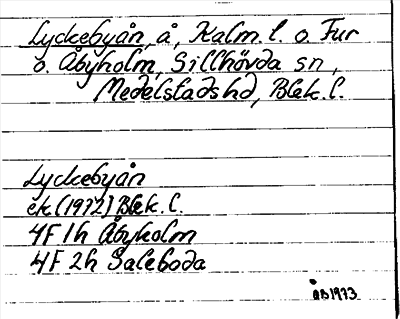 Lyckebyån, å, Kalm. l. o. Fur
o. Åbyholm, Sillhövda sn,
Medelstads hd, Blek. l.
Lyckebyån
ek (1972) Blek. l.
4F 1h Åbyholm
4F 2h Saleboda
ÅB 1973